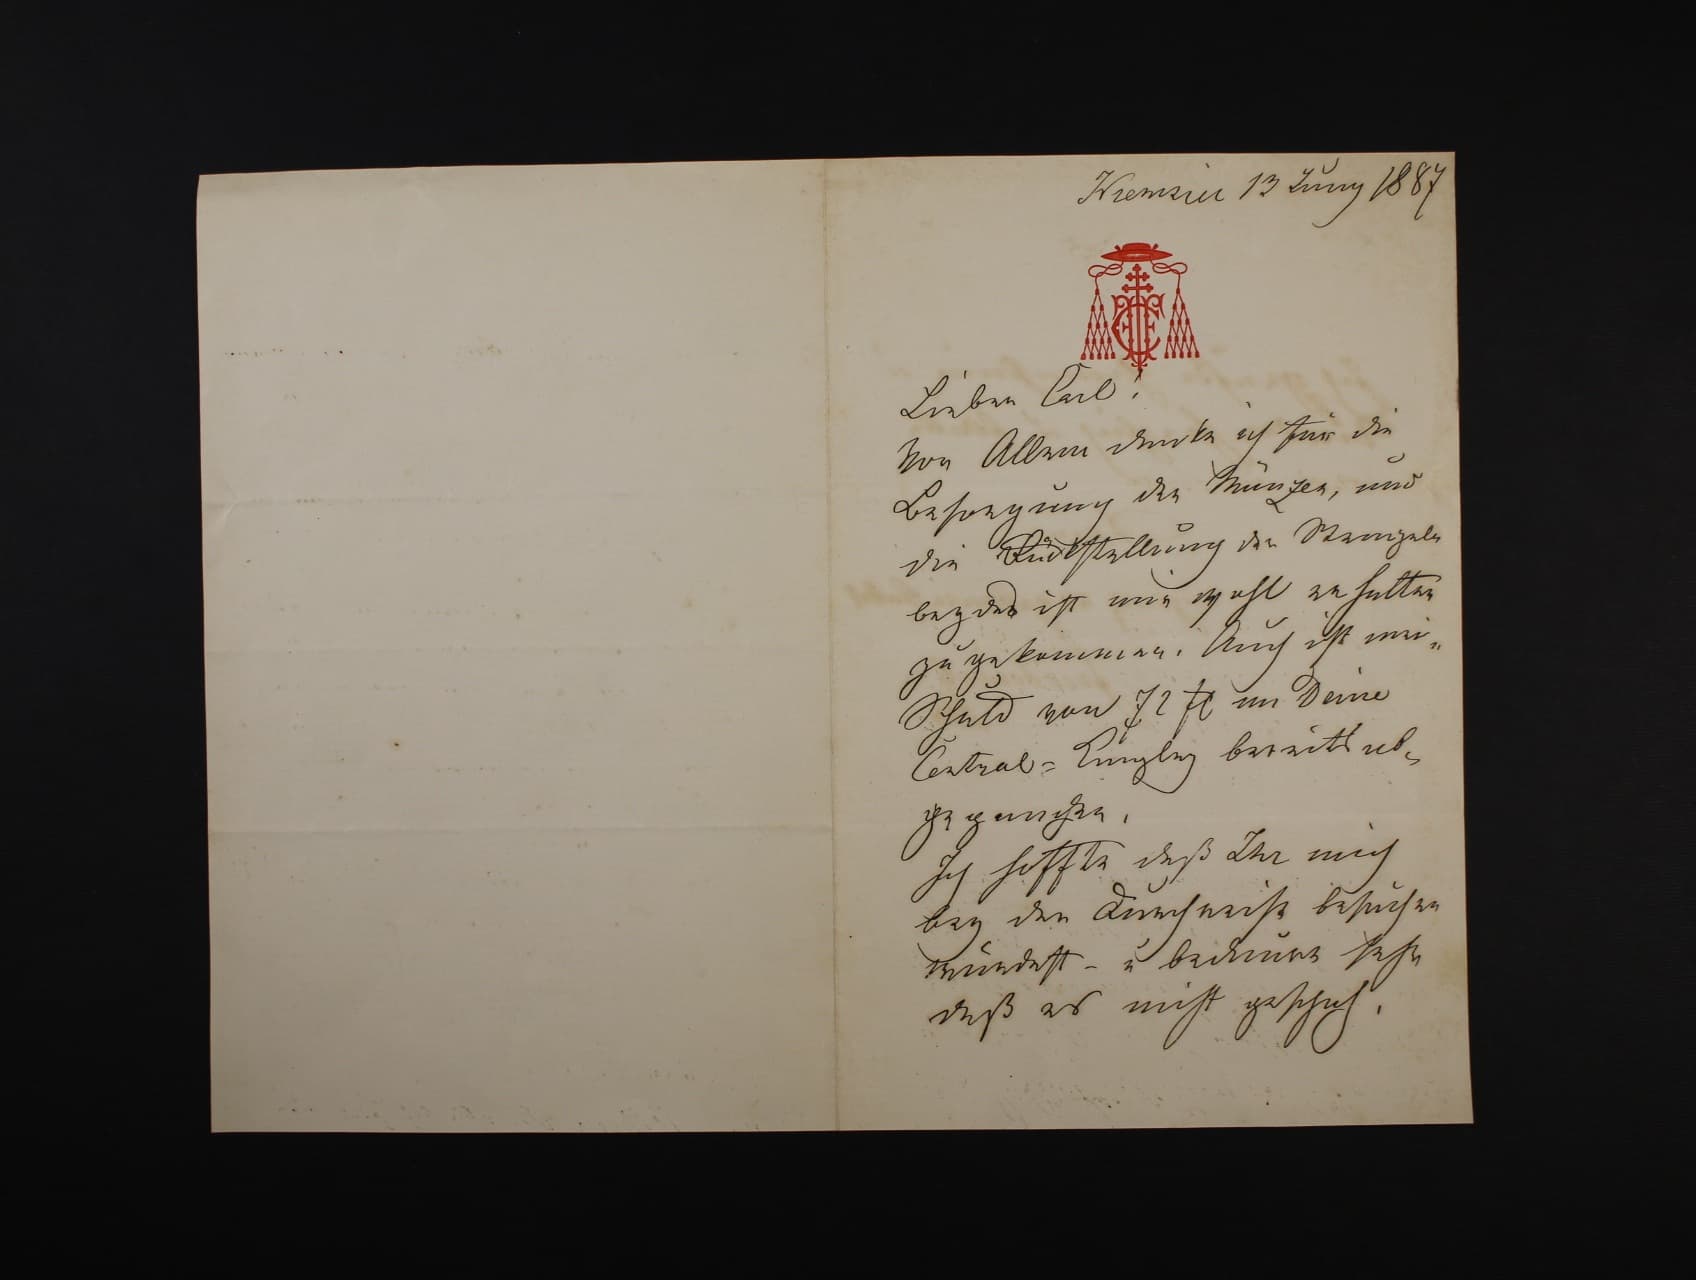 Kremsier 13 Juny 1887
Lieber Carl!
Vor Allem danke ich für die
Besorgung der Münzen, und
die Rückstellung der Stempeln
beydes ist mir wohl erhalten
zugekommen. Auch ist mei-
Schuld von 72 fl an Deine
Central= Kanzley bereits ab-
gegangen.
Ich hoffte daß Ihr mich
bey der Durchreise besuchen
würdest - u bedaure sehr
daß es nicht geschah.